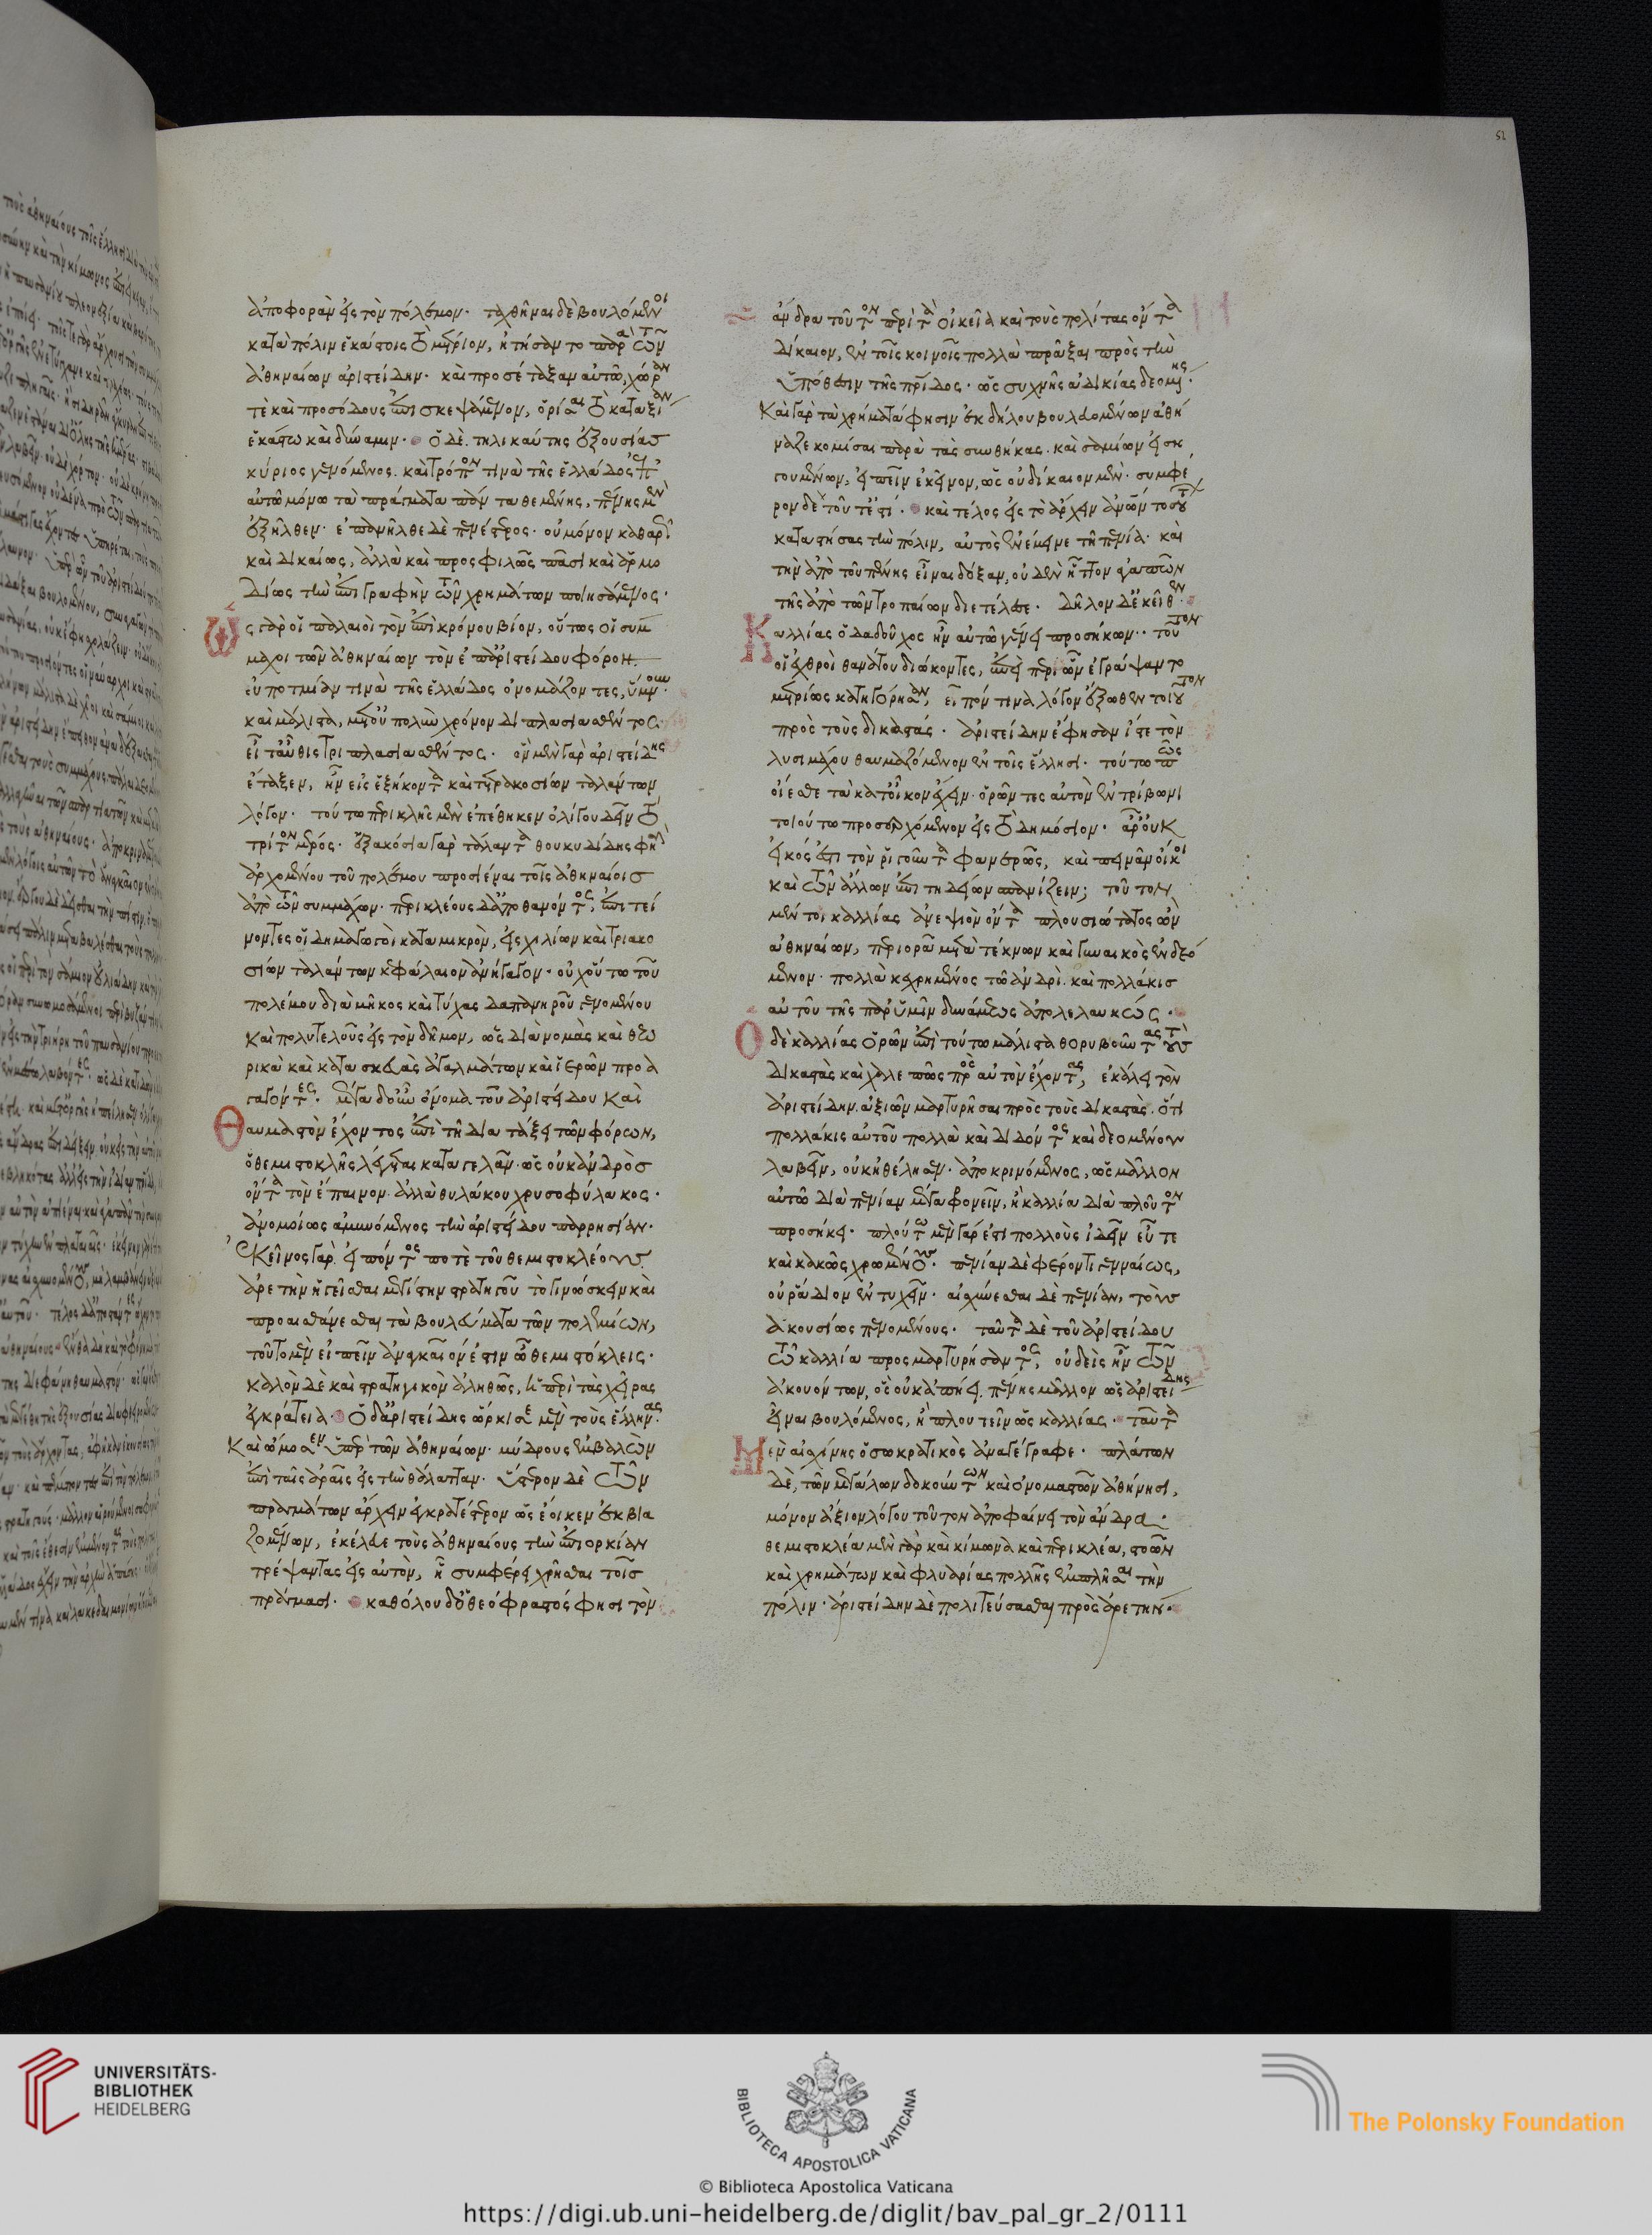 ἀποφορὰν εἰς τὸν πόλεμον. ταχθῆναι δὲ βουλόμενοι
κατὰ πόλιν ἑκάστοις τὸ μέτριον, ἠτήσαντο παρὰ τῶν
ἀθηναίων ἀριστείδην. καὶ προσέταξαν αὐτῶ, χώραν
τὲ καὶ προσόδους ἐπισκεψάμενον, ὁρίσαι τὸ κατ' ἀξίαν
ἑκάστω καὶ δύναμιν. ὁ δὲ τηλικαύτης ἐξουσίας
κύριος γενόμενος. καὶ τρόπον τινὰ τῆς ἑλλάδος ἐπ'
αὐτῶ μόνω τὰ πράγματα πάντα θεμένης, πένης μὲν
ἐξῆλθεν. ἐπανῆλθε δὲ πενέστερος. οὐ μόνον καθαρῶς
καὶ δικαίως, ἀλλὰ καὶ προσφιλῶς πᾶσι καὶ ἁρμο
δίως τὴν ἐπιγραφὴν τῶν χρημάτων ποιησάμενος.
ὡς γὰρ οἱ παλαιοὶ τὸν ἐπὶ κρόνου βίον, οὕτως οἱ σύμ
μαχοι τῶν ἀθηναίων τὸν ἐπ' ἀριστείδου φόρον.
εὐποτμίαν τινὰ τῆς ἑλλάδος ὀνομάζοντες, ὕμνουν.
καὶ μάλιστα, μετ' οὐ πολὺν χρόνον διπλασιασθέντος.
εἶτ' αὖθις τριπλασιασθέντος. ὃν μὲν γὰρ ἀριστείδης
ἔταξεν, ἦν εἰς ἑξήκοντα καὶ τετρακοσίων ταλάντων
λόγον. τούτω περικλῆς μὲν ἐπέθηκεν ὀλίγου δεῖν τὸ
τρίτον μέρος. ἑξακόσια γὰρ τάλαντα θουκυδίδης φησὶ
ἀρχομένου τοῦ πολέμου προσιέναι τοῖς ἀθηναίοις
ἀπὸ τῶν συμμάχων. περικλέους δ' ἀποθανόντος, ἐπιτεί
νοντες οἱ δημαγωγοὶ κατὰ μικρὸν, εἰς χιλίων καὶ τριακο
σίων ταλάντων κεφάλαιον ἀνήγαγον. οὐχ οὕτω τοῦ
πολέμου διὰ μῆκος καὶ τύχας δαπανηροῦ γενομένου
καὶ πολυτελοῦς εἰς τὸν δῆμον, ὡς διὰ νομὰς καὶ θεω
ρικὰ καὶ κατασκευὰς ἀγαλμάτων καὶ ἱερῶν προα
γαγόντες. μέγα δ' οὖν ὄνομα τοῦ ἀριστείδου καὶ
θαυμαστὸν ἔχοντος ἐπὶ τῆ διατάξει τῶν φόρων,
ὁ θεμιστοκλῆς λέγεται καταγελᾶν. ὡς οὐκ ἀνδρὸς
ὄντα τὸν ἔπαινον. ἀλλὰ θυλάκου χρυσοφύλακος.
ἀνομοίως ἀμυνόμενος τὴν ἀριστείδου παρρησίαν.
ἐκεῖνος γὰρ. εἰπόντος ποτὲ τοῦ θεμιστοκλέους
ἀρετὴν ἡγεῖσθαι μεγίστην στρατηγοῦ τὸ γινώσκειν καὶ
προαισθάνεσθαι τὰ βουλεύματα τῶν πολεμίων,
τοῦτο μὲν εἰπεῖν ἀναγκαῖον ἐστιν ὦ θεμιστόκλεις.
καλὸν δὲ καὶ στρατηγικὸν ἀληθῶς, ἡ περὶ τὰς χεῖρας
ἐγκράτεια. ὁ δ' ἀριστείδης ὥρκισε μὲν τοὺς ἕλληνας.
καὶ ὤμοσεν ὑπὲρ τῶν ἀθηναίων. μύδρους ἐμβαλὼν
ἐπὶ ταῖς ἀραῖς εἰς τὴν θάλατταν. ὕστερον δὲ τῶν
πραγμάτων ἄρχειν ἐγκρατέστερον ὡς ἔοικεν ἐκβια
ζομένων, ἐκέλευε τοὺς ἀθηναίους τὴν ἐπιορκίαν
τρέψαντας εἰς αὐτὸν, ἧ συμφέρει χρῆσθαι τοῖς
πράγμασι. καθόλου δ' ὁ θεόφραστός φησι τὸν
ἄνδρα τοῦτον περὶ τὰ οἰκεῖα καὶ τοὺς πολίτας ὄντα
δίκαιον, ἐν τοῖς κοινοῖς πολλὰ πρᾶξαι πρὸς τὴν
ὑπόθεσιν τῆς πατρίδος. ὡς συχνῆς ἀδικίας δεομένης.
καὶ γὰρ τὰ χρήματά φησιν ἐκ δήλου βουλευομένων ἀθή
ναζε κομίσαι παρὰ τὰς συνθήκας. καὶ σαμίων εἰση
γουμένων, εἰπεῖν ἐκεῖνον, ὡς οὐ δίκαιον μὲν. συμφέ
ρον δὲ τοῦτ' ἐστί. καὶ τέλος εἰς τὸ ἄρχειν ἀνθρώπων τοσούτων
καταστήσας τὴν πόλιν, αὐτὸς ἐνέμεινε τῆ πενία. καὶ
τὴν ἀπὸ τοῦ πένης εἶναι δόξαν, οὐδὲν ἧττον ἀγαπῶν
τῆς ἀπὸ τῶν τροπαίων διετέλεσε. δῆλον δ' ἐκεῖθεν.
καλλίας ὁ δαδοῦχος ἦν αὐτῶ γένει προσήκων. τοῦτον
οἱ ἐχθροὶ θανάτου διώκοντες, ἐπεὶ περὶ ὧν ἐγράψαντο
μετρίως κατηγόρησαν, εἶπόν τινα λόγον ἔξωθεν τοιοῦτον
πρὸς τοὺς δικαστάς. ἀριστείδην ἔφησαν ἴστε τὸν
λυσιμάχου θαυμαζόμενον ἐν τοῖς ἕλλησι. τούτω πῶς
οἴεσθε τὰ κατ' οἶκον ἔχειν. ὁρῶντες αὐτὸν ἐν τρίβωνι
τοιούτω προσερχόμενον εἰς τὸ δημόσιον. ἆρ' οὐκ
εἰκός ἐστι τὸν ῥιγοῦντα φανερῶς, καὶ πεινᾶν οἴκοι
καὶ τῶν ἄλλων ἐπιτηδείων σπανίζειν; τοῦτον
μέν τοι καλλίας ἀνεψιὸν ὄντα πλουσιώτατος ὢν
ἀθηναίων, περιορᾶ μετὰ τέκνων καὶ γυναικὸς ἐνδεό
μενον. πολλὰ κεχρημένος τῶ ἀνδρὶ. καὶ πολλάκις
αὐτοῦ τῆς παρ' ὑμῖν δυνάμεως ἀπολελαυκώς.
ὁ δὲ καλλίας ὁρῶν ἐπὶ τούτω μάλιστα θορυβοῦντας τοὺς
δικαστὰς καὶ χαλεπῶς πρὸς αὐτὸν ἔχοντας, ἐκάλει τὸν
ἀριστείδην. ἀξιῶν μαρτυρῆσαι πρὸς τοὺς δικαστὰς. ὅτι
πολλάκις αὐτοῦ πολλὰ καὶ διδόντος καὶ δεομένου
λαβεῖν, οὐκ ἠθέλησεν. ἀποκρινόμενος, ὡς μᾶλλον
αὐτῶ διὰ πενίαν μέγα φρονεῖν, ἢ καλλία διὰ πλοῦτον
προσήκει. πλούτω μὲν γάρ ἐστι πολλοὺς ἰδεῖν εὖ τε
καὶ κακῶς χρωμένους. πενίαν δὲ φέροντι γενναίως,
οὐ ῥάδιον ἐντυχεῖν. αἰσχύνεσθαι δὲ πενίαν, τοὺς
ἀκουσίως πενομένους. ταῦτα δὲ τοῦ ἀριστείδου
τῶ καλλία προσμαρτυρήσαντος, οὐδεὶς ἦν τῶν
ἀκουόντων, ὃς οὐκ ἀπήει. πένης μᾶλλον ὡς ἀριστείδης
εἶναι βουλόμενος, ἢ πλουτεῖν ὡς καλλίας. ταῦτα
μὲν αἰσχίνης ὁ σωκρατικὸς ἀναγέγραφε. πλάτων
δὲ, τῶν μεγάλων δοκούντων καὶ ὀνομαστῶν ἀθήνησι,
μόνον ἄξιον λόγου τοῦτον ἀποφαίνει τὸν ἄνδρα.
θεμιστοκλέα μὲν γὰρ καὶ κίμωνα καὶ περικλέα, στοῶν
καὶ χρημάτων καὶ φλυαρίας πολλῆς ἐμπλῆσαι τὴν
πόλιν. ἀριστείδην δὲ πολιτεύσασθαι πρὸς ἀρετήν.
52
UNIVERSITÄTS-
BIBLIOTHEK
HEIDELBERG
BIBLIOTECA APOSTOLICA VATICANA
The Polonsky Foundation
© Biblioteca Apostolica Vaticana
https://digi.ub.uni-heidelberg.de/diglit/bav_pal_gr_2/0111